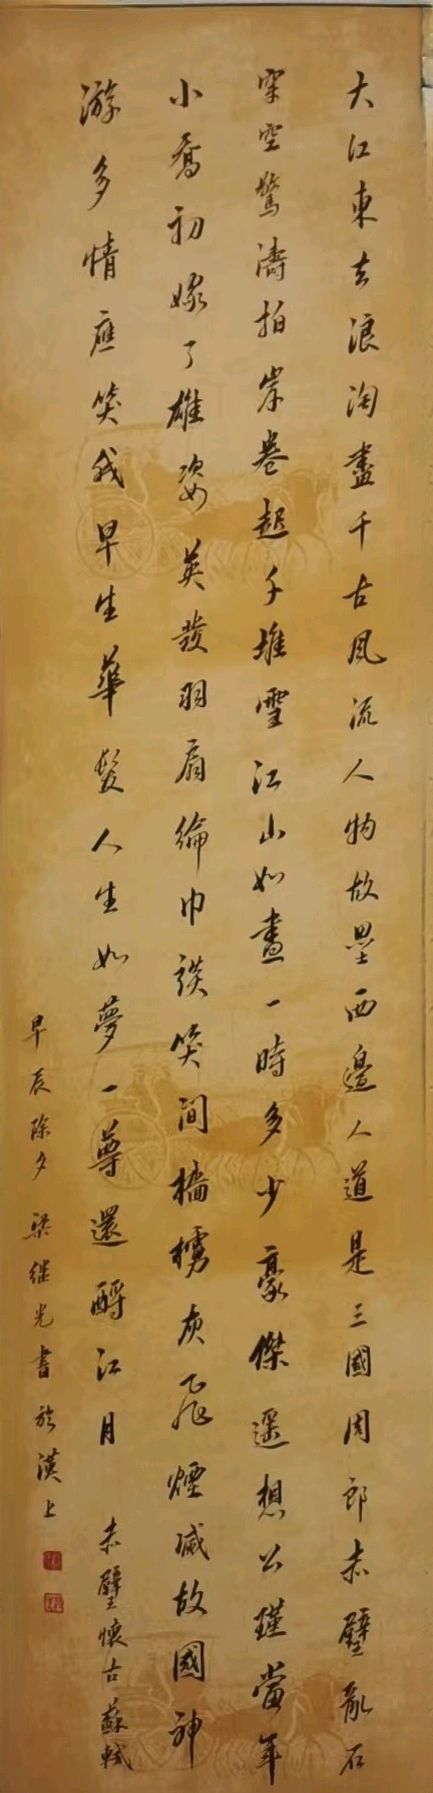 大江東去浪淘盡千古風流人物故壘西邊人道是三國周郎赤壁亂石
穿空驚濤拍岸卷起千堆雪江山如畫一時多少豪傑遥想公瑾當年
小喬初嫁了雄姿英發羽扇綸巾談笑間檣櫓灰飛煙滅故國神
游多情應笑我早生華髮人生如夢一尊還酹江月 赤壁懷古蘇軾
辰除夕梁继光書於漢上